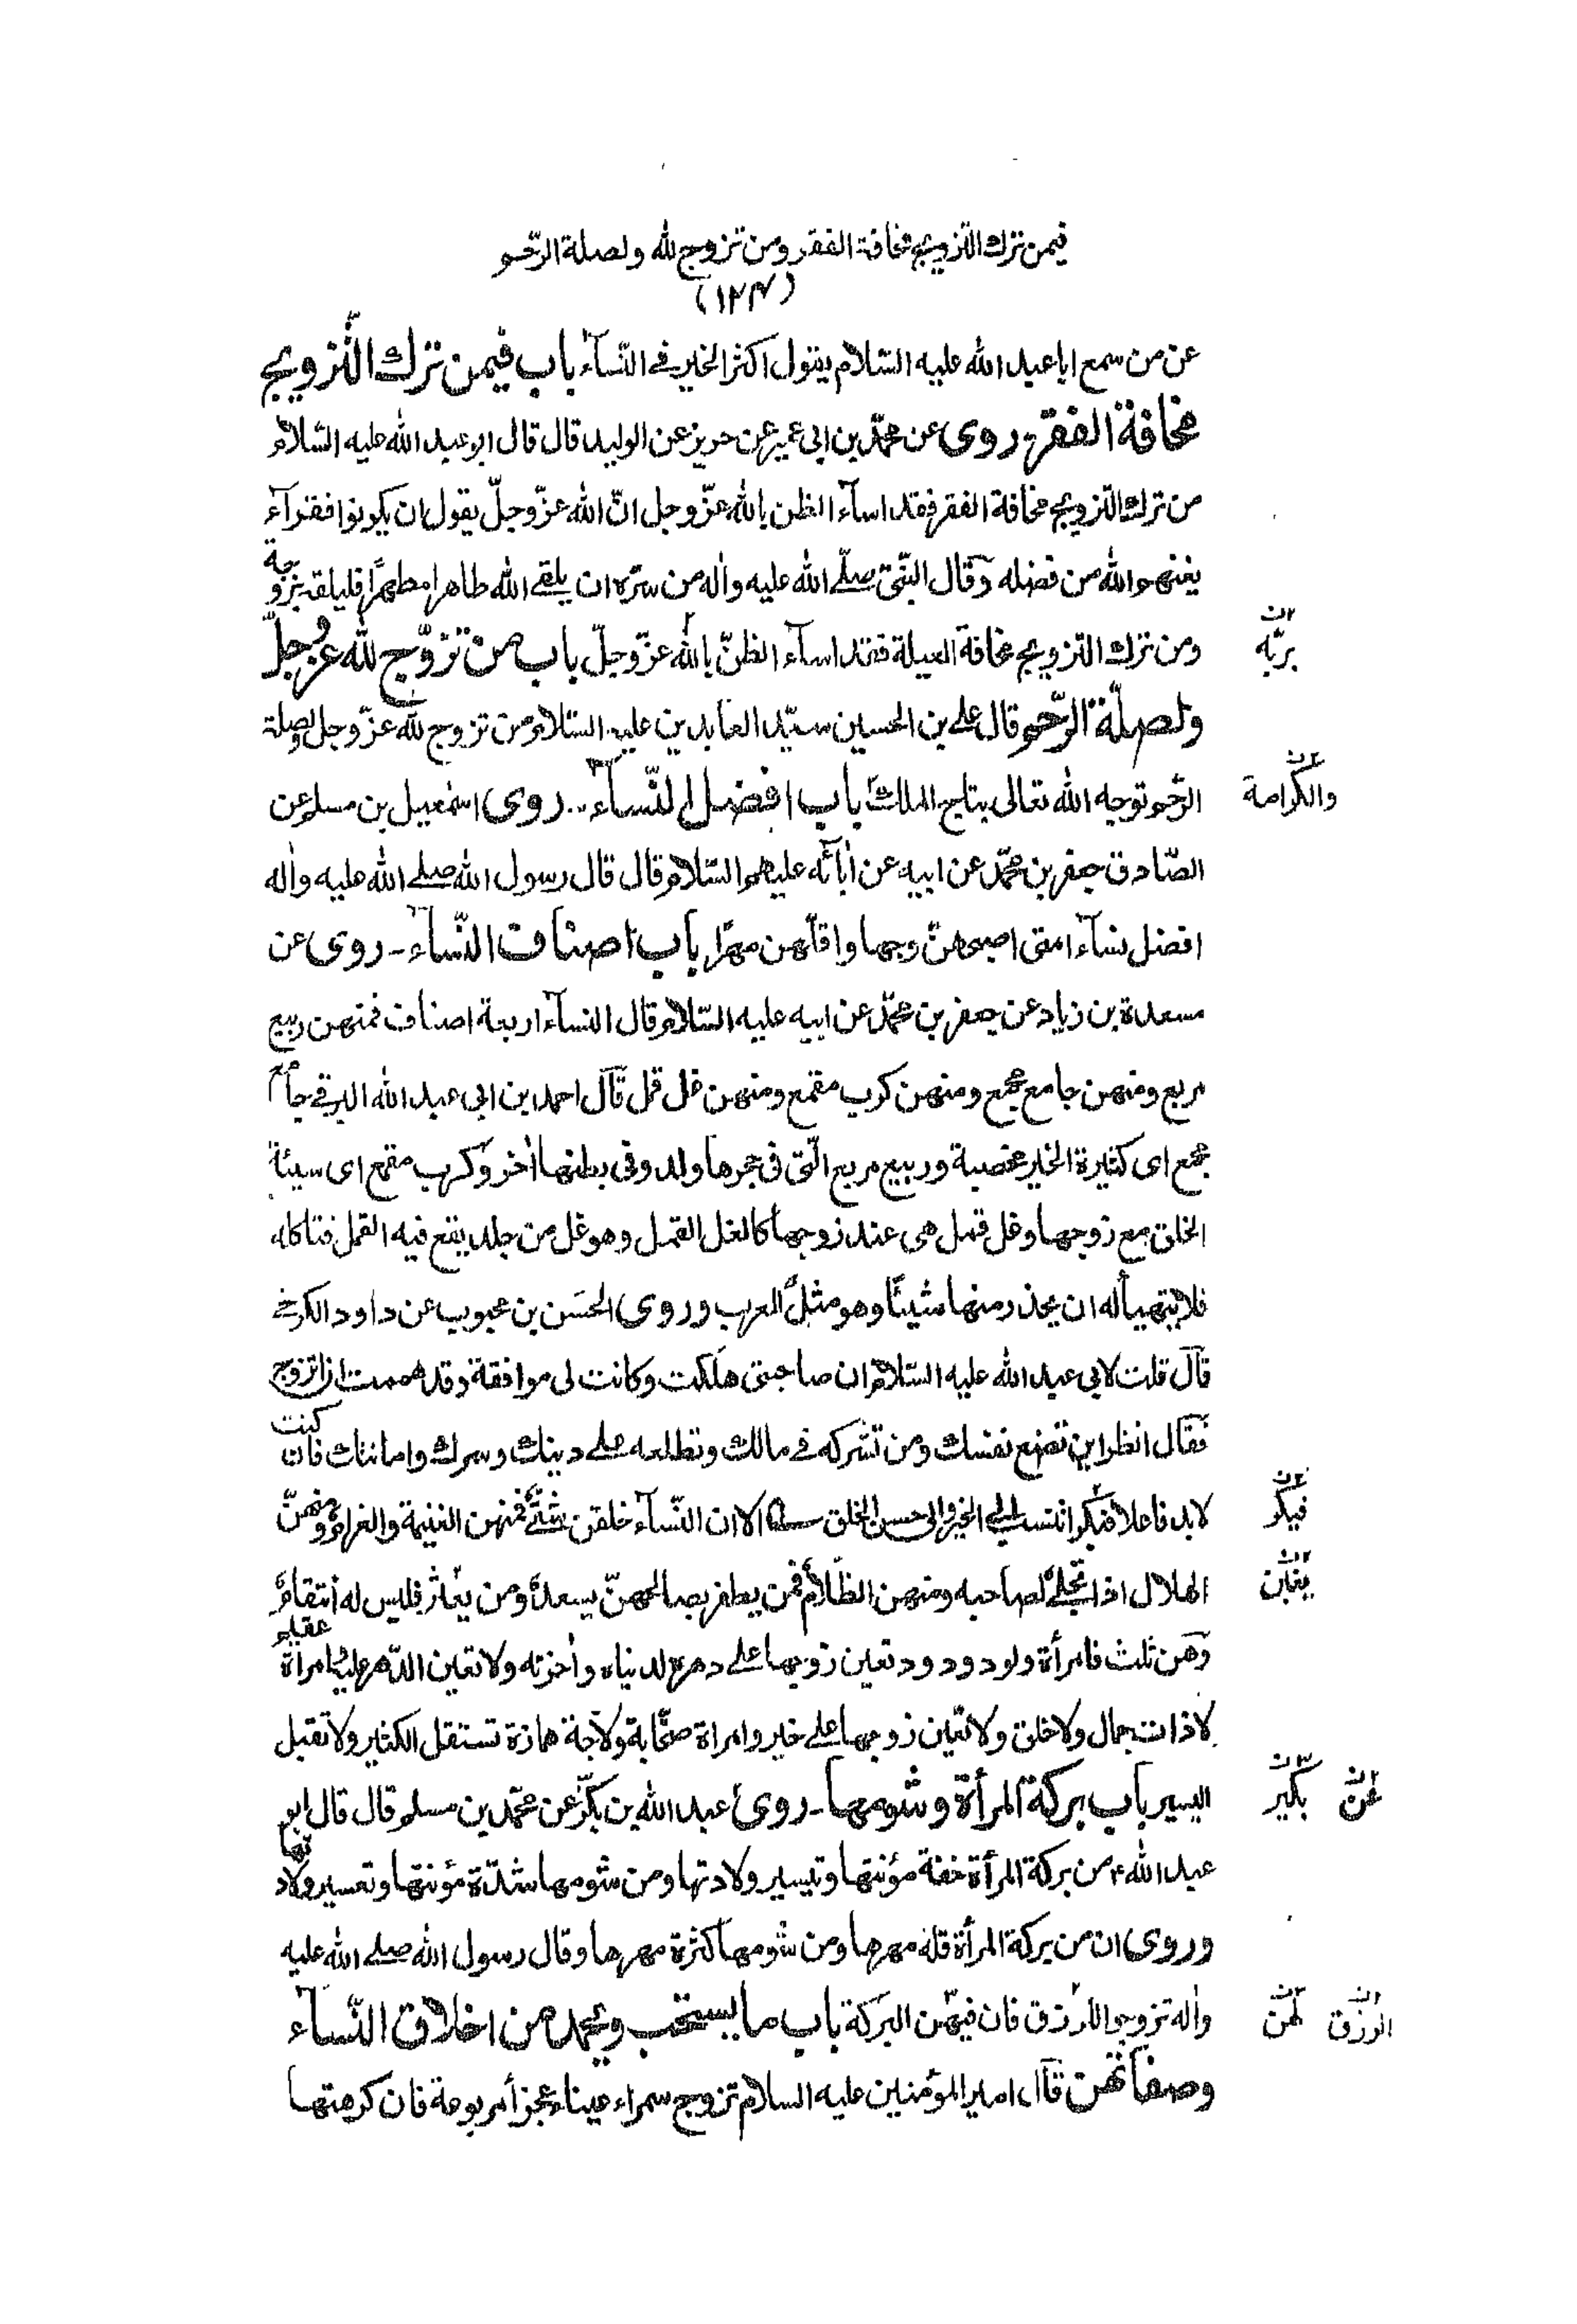 فيمن ترك التزويج مخافة الفقر ومن تزوج لله ولصلة الرّحم
(١٢٤)
عن من سمع ابا عبد الله عليه السّلام يقول اكثر الخير فے النّسآء باب فيمن ترك التّزويج
مخافة الفقر روى عن محمّد بن ابى عمير عن حريز عن الوليد قال قال ابو عبد الله عليه السّلام
من ترك التّزويج مخافة الفقر فقد اسآء الظن بالله عزّ وجل انّ الله عزّ وجلّ يقول ان يكونوا فقرآء
يغنهم الله من فضله وقال النّبى صلّے الله عليه واٰله من سرّه ان يلقے الله طاهرا مطهرًا فليلقه بزوجة
ومن ترك التّزويج مخافة العيلة فقد اسآء الظنّ بالله عزّ وجلّ باب من تزوّج لله عزّ وجلّ
بربّه
ولصلة الرّحم قال علے بن الحسين سيّد العابدين عليه السّلام من تزوج لله عزّ وجل ولصلة
الرّحم توجه الله تعالى بتاج الملك باب افضل النّسآء روى اسمٰعيل بن مسلم عن
والكرامة
الصّادق جعفر بن محمّد عن ابيه عن اٰبآئه عليهم السّلام قال قال رسول الله صلے الله عليه واٰله
افضل نسآء امتى اصبحهنّ وجها واقلّهن مهرًا باب اصناف النّسآء روى عن
مسعدة بن زياد عن جعفر بن محمّد عن ابيه عليه السّلام قال النسآء اربعة اصناف فمنهن ربيع
مربع ومنهن جامع مجمع ومنهن كرب مقمع ومنهن غل قمل قآل احمد ابن ابى عبد الله البرقے جامع
مجمع اى كثيرة الخير مخصبة وربيع مربع الّتى فى حجرها ولد وفى بطنها اٰخر وكرب مقمع اى سيئة
الخلق مع زوجها وغل قمل هى عند زوجها كالغل القمل وهو غل من جلد يقع فيه القمل فتاكله
فلا يتهيأ له ان يحذر منها شيئًا وهو مثل للعرب وروى الحسَن بن محبوب عن داود الكرخے
قآل قلت لابى عبد الله عليه السّلام ان صاحبتى هلكت وكانت لى موافقة وقد هممت ان اتزوج
فقال انظر اين تضع نفسك ومن تشركه فے مالك وتطلعه علے دينك وسرك وامانتك فان كنت
لابد فاعلا فبكرا تنسب الى الخير والى حسن الخلق الا ان النّسآء خلقن شتّے فمنهن الغنيمة والغرام ومنهنّ
فبكر
الهلال اذا تجلے لصاحبه ومنهن الظّلام فمن يظفر بصالحهنّ يسعد ومن يعثر فليس له انتقام
يغابن
وهن ثلٰث فامرأة ولود ودود تعين زوجها علے دهره لدنياه واٰخرته ولا تعين الدّهر عليه وامراة عقيم
لا ذات جمال ولا خلق ولا تعين زوجها علے خير وامراة صخّابة ولّاجة همازة تستقل الكثير ولا تقبل
اليسير باب بركة المرأة وشومها روى عبد الله بن بكر عن محمّد بن مسلم قال قال ابو
بكير
عن
عبد الله ع من بركة المرأة خفة مؤنتها وتيسير ولادتها ومن شومها شدّة مؤنتها وتعسير ولادتها
وروى ان من بركة المرأة قلة مهرها ومن شومها كثرة مهرها وقال رسول الله صلے الله عليه
واٰله تزوجوا الازرق فان فيهن البركة باب ما يستحب ويحمد من اخلاق النّسآء
لهن
الزرق
وصفاتهن قآل امير المؤمنين عليه السلام تزوج سمراء عيناء عجزأ مربوعة فان كرهتها